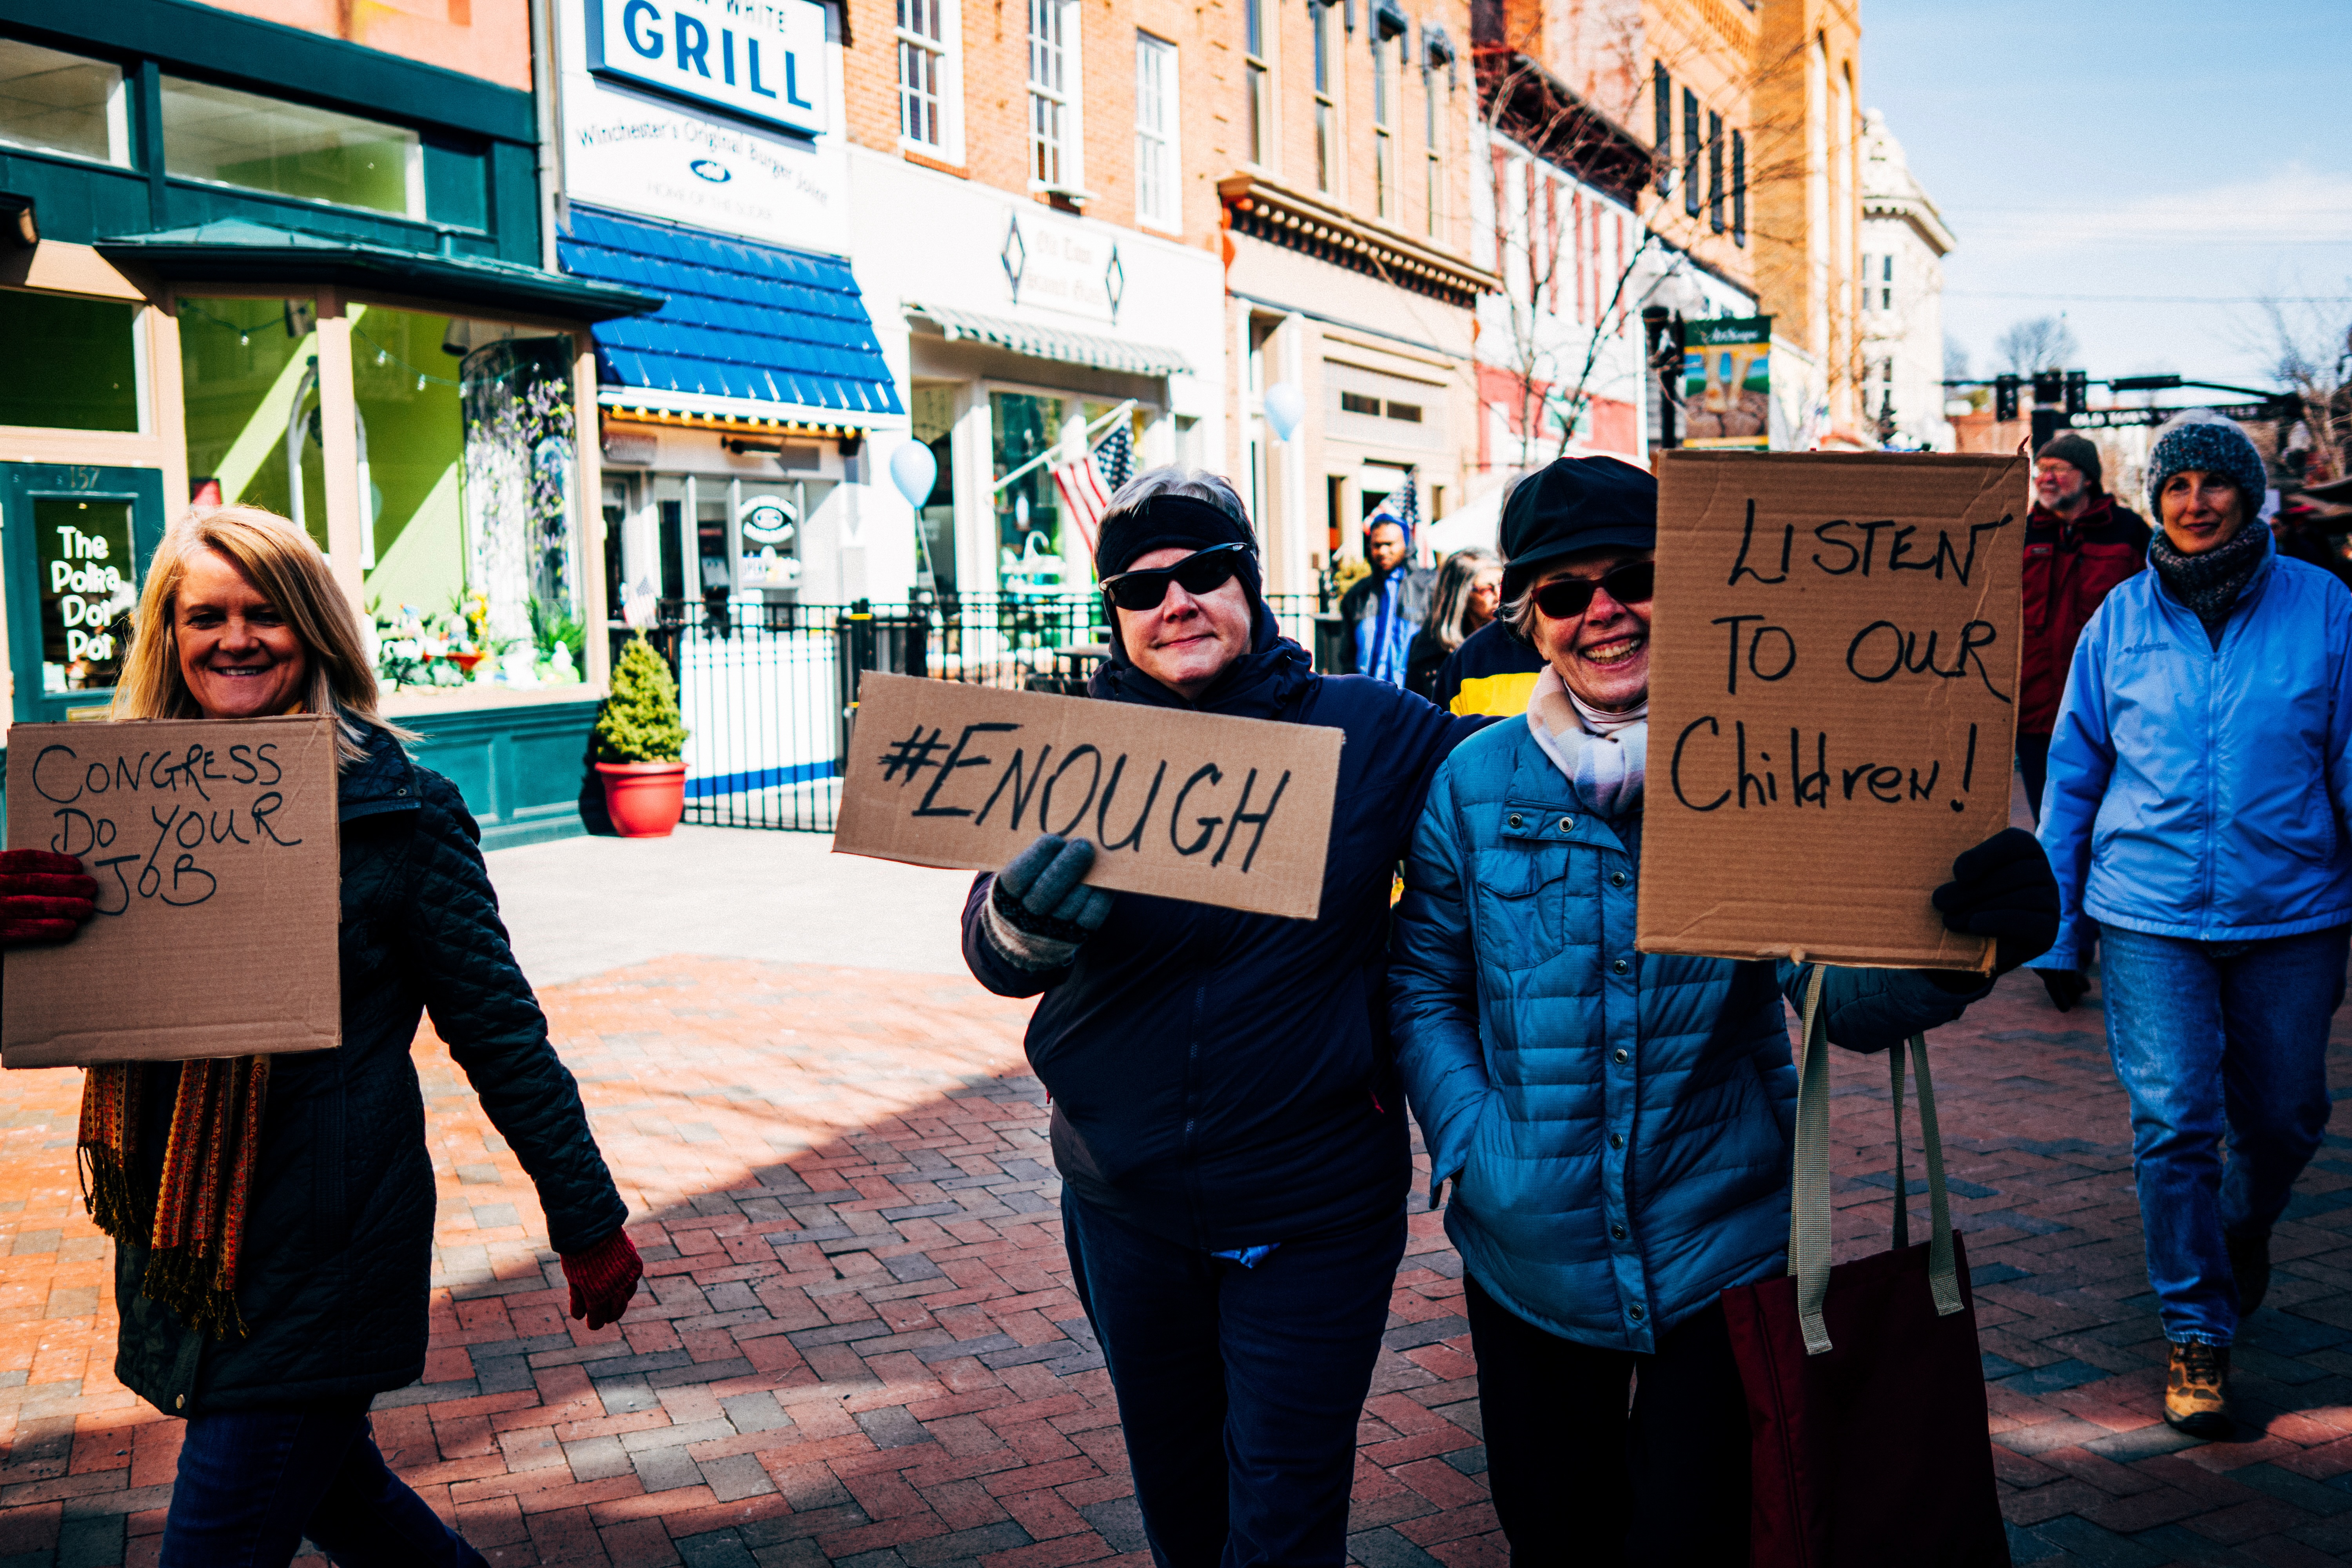 WHITE
GRILL
Winchester's Original Burger Joint
HOME OF THE
Old Town
157
The
Polka
Dot
Pot
CONGRESS
DO YOUR
JOB
#ENOUGH
LISTEN
TO OUR
Children!
Columbia